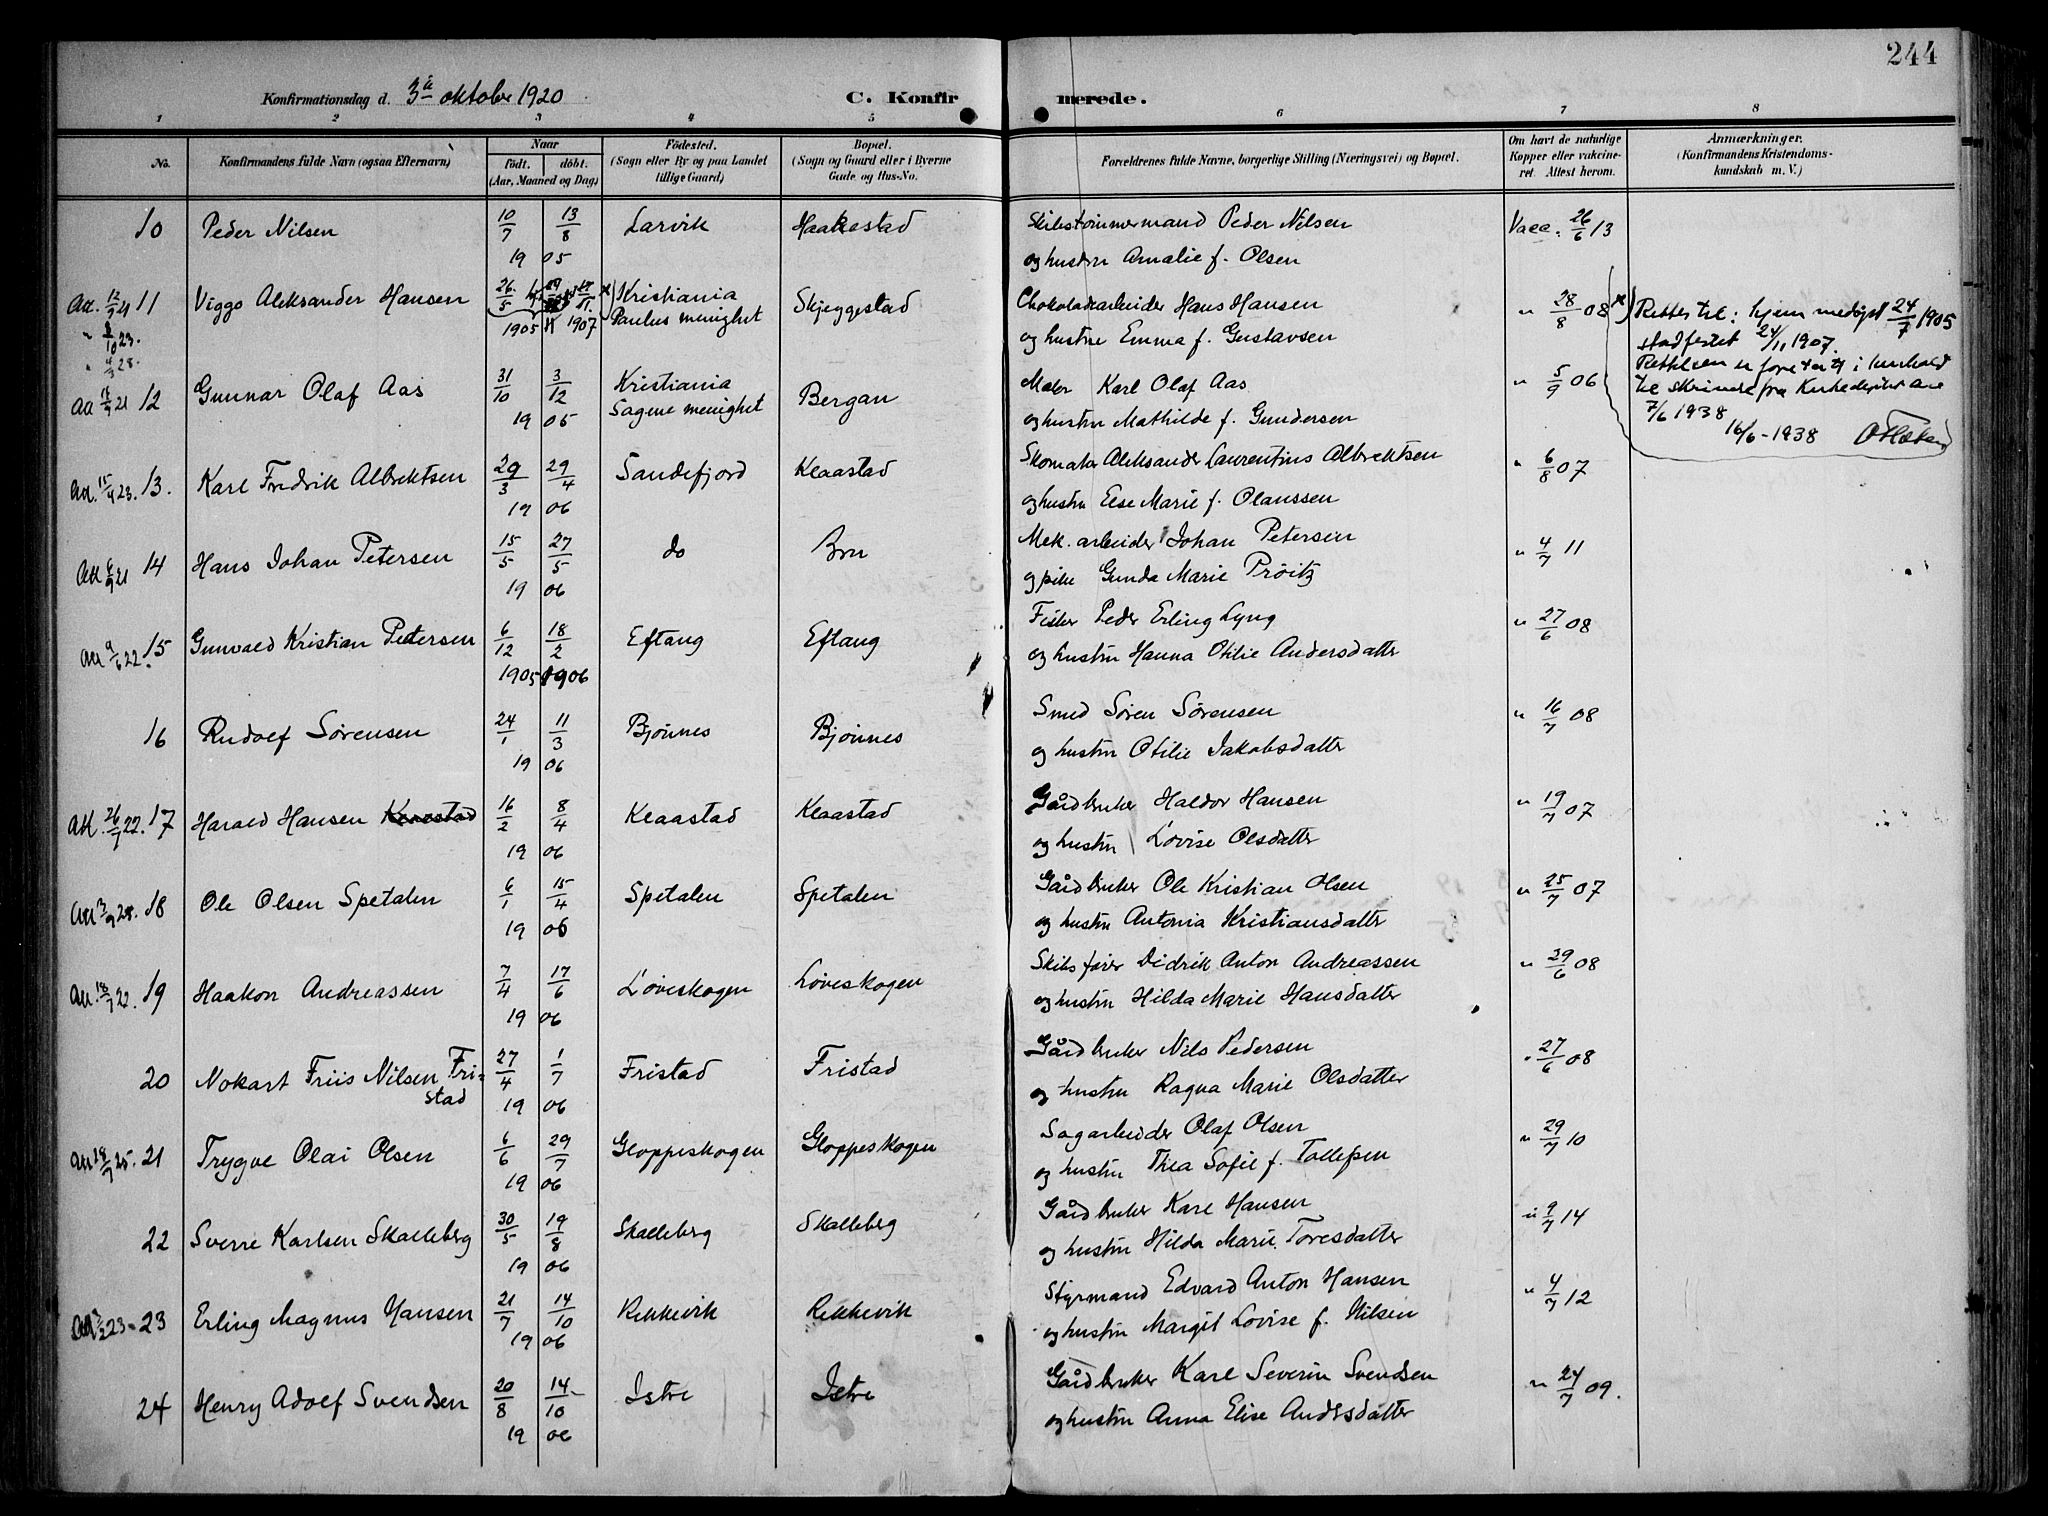 244
Konfirmationsdag d. 3die oktober 1920 C. Konfirmerede.
1 2 3 4 5 6 7 8
No. Konfirmandens fulde Navn (ogsaa Efternavn) Naar født. døbt. (Aar, Maaned og Dag) Fødested. (Sogn eller By og paa Landet tillige Gaard) Bopæl. (Sogn og Gaard eller i Byerne Gade og Hus-No. Forældrenes fulde Navne, borgerlige Stilling (Næringsvei) og Bopæl. Om havt de naturlige Kopper eller vakcineret. Attest herom. Anmærkninger. (Konfirmandens Kristendomskundskab m. V.)
10 Peder Nilsen 10/7 13/8 Larvik Haakestad Skibstømmermand Peder Nilsen Vacc. 26/6 13
19 05 og hustru Amalie f. Olsen
11 Viggo Aleksander Hansen 26/5 Kristiania Skjeggestad Chokoladearbeider Hans Hansen " 28/8 08
1905 1907 Paulus menighet og hustru Emma f. Gustavsen
Rettes til: hjemmedøpt 24/7 1905
stadfestet 24/11 1907.
Rettelsen er foretatt i henhold
til skrivelse fra Kirkedepartem
7/6 1938
16/6-1938
Aa 21 12 Gunnar Olaf Aas 31/10 3/12 Kristiania Bergan Maler Karl Olaf Aas " 5/9 06
19 05 Sagene menighet og hustru Mathilde f. Gundersen
Att. 15/4 23. 13. Karl Fredrik Albrektsen 29/3 29/4 Sandefjord Klaastad Skomaker Aleksander Laurentius Albrektsen " 6/8 07
19 06 og hustru Else Marie f. Olaussen
Att 6/9 21 14 Hans Johan Petersen 15/5 27/5 do Bru Mek. arbeider Johan Petersen " 4/7 11
19 06 og pike Gunda Marie Prøitz
Att 9/6 22. 15 Gunvald Kristian Pedersen 6/12 18/2 Eftang Eftang Fisker Peder Erling Lyng " 27/6 08
1905 1906 og hustru Hanna Otilie Andersdatter
16 Rudolf Sørensen 24/1 11/3 Bjønnes Bjønnes Smed Søren Sørensen " 16/7 08
19 06 og hustru Otilie Jakobsdatter
Att. 26/7 22. 17 Harald Hansen Klaastad 16/2 8/4 Klaastad Klaastad Gårdbruker Haldor Hansen " 19/7 07
19 06 og hustru Lovise Olsdatter
18 Ole Olsen Spetalen 6/1 15/4 Spetalen Spetalen Gårdbruker Ole Kristian Olsen " 25/7 07
19 06 og hustru Antonia Kristiansdatter
Att. 18/7 22. 19 Haakon Andreassen 7/4 17/6 Løveskogen Løveskogen Skibsfører Didrik Anton Andreassen " 29/6 08
19 06 og hustru Hilda Marie Hansdatter
20 Nokart Friis Nilsen Fristad 27/4 1/7 Fristad Fristad Gårdbruker Nils Pedersen " 27/6 08
19 06 og hustru Ragna Marie Olsdatter
Att 18/7 25. 21 Trygve Olai Olsen 6/6 29/7 Gloppeskogen Gloppeskogen Sagarbeider Olaf Olsen " 29/7 10
19 06 og hustru Thea Sofie f. Tollefsen
22 Sverre Karlsen Skalleberg 30/5 19/8 Skalleberg Skalleberg Gårdbruker Karl Hansen " 9/7 14
19 06 og hustru Hilda Marie Toresdatter
23 Erling Magnus Hansen 21/7 14/10 Rekkevik Rekkevik Styrmand Edvard Anton Hansen " 4/7 12
19 06 og hustru Margit Lovise f. Nilsen
24 Henry Adolf Svendsen 20/8 14/10 Istre Istre Gårdbruker Karl Severin Svendsen " 24/7 09.
19 06 og hustru Anna Elise Andersdatter